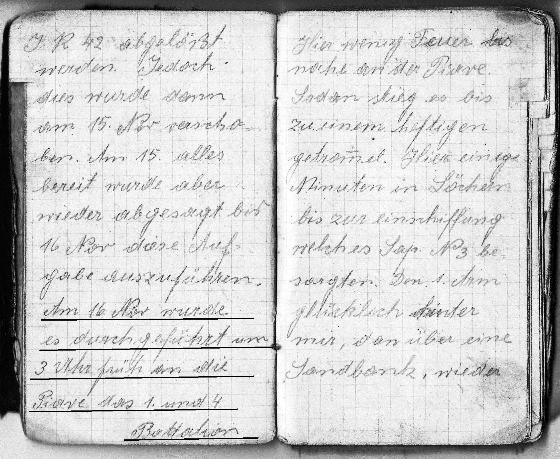 J. R. 42 abgelößt
werden. Jedoch
dies wurde dann
am. 15. Nov verscho-
ben. Am 15. alles
bereit wurde aber
wieder abgesagt bis
16 Nov diese Auf-
gabe auszuführen.
Am 16 Nov wurde
es durchgeführt um
3 Uhr früh an die
Piave das 1. und 4
Battalion
Hier wenig Feuer bis
nahe an der Piave.
Sodan stieg es bis
zu einem heftigen
getromel. Hier einige
Minuten in Löchern
bis zur einschiffung
welches Sap. N 3 be-
sorgten. Den 1. Arm
glücklich hinter
mir, dan über eine
Sandbank, wieder